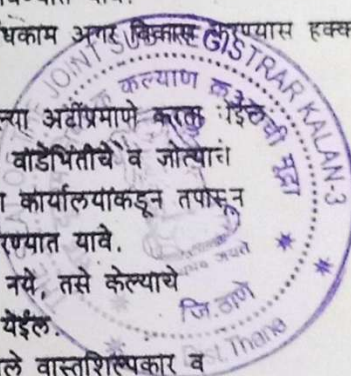 धकाम अगर विकास करण्यास हक्क
ल्या अटींप्रमाणे करता येईल
वाडेभिंतीचे व जोत्याचे
कार्यालयाकडून तपासून
रण्यात यावे.
नये, तसे केल्याचे
येईल.
ले वास्तुशिल्पकार व
JOINT SUB REGISTRAR KALAN-3
कल्याण
ची मुद्रा
जि. ठाणे
Dist. Thane